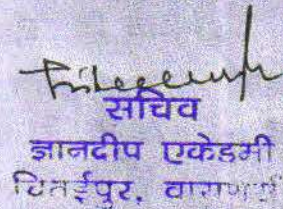 सचिव
ज्ञानदीप एकेडमी
चितईपुर, वाराणसी